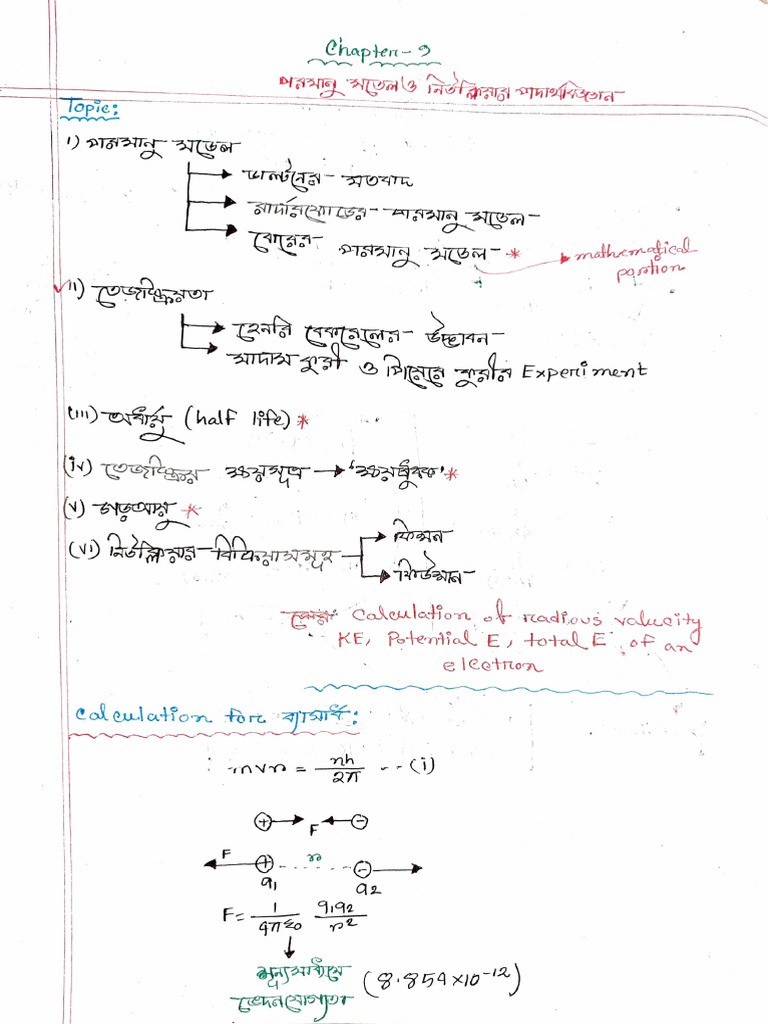 Chapter-9
পরমাণু মডেল ও নিউক্লিয়ার পদার্থবিজ্ঞান
Topic:
i) পরমাণু মডেল
→ ডাল্টনের মতবাদ
→ রাদারফোর্ডের পরমাণু মডেল
→ বোরের পরমাণু মডেল * → mathematical portion
ii) তেজস্ক্রিয়তা
→ হেনরি বেকরেলের উদ্ভাবন
→ মাদাম কুরী ও পিয়েরে কুরীর Experiment
(iii) অর্ধায়ু (half life) *
(iv) তেজস্ক্রিয় ক্ষয়সূত্র → 'ক্ষয়ধ্রুবক' *
(v) গড়আয়ু *
(vi) নিউক্লিয়ার বিক্রিয়াসমূহ → ফিশন
→ ফিউশন
Calculation of readious valucity
KE, Potential E, total E of an
electron
Calculation for ব্যাসার্ধ:
mvr = nh/2π --- (i)
+ → F ← -
F r
q1 q2
F = 1/4πε0 q1q2/r2
শূন্যমাধ্যমে
ভেদনযোগ্যতা (8.854×10-12)